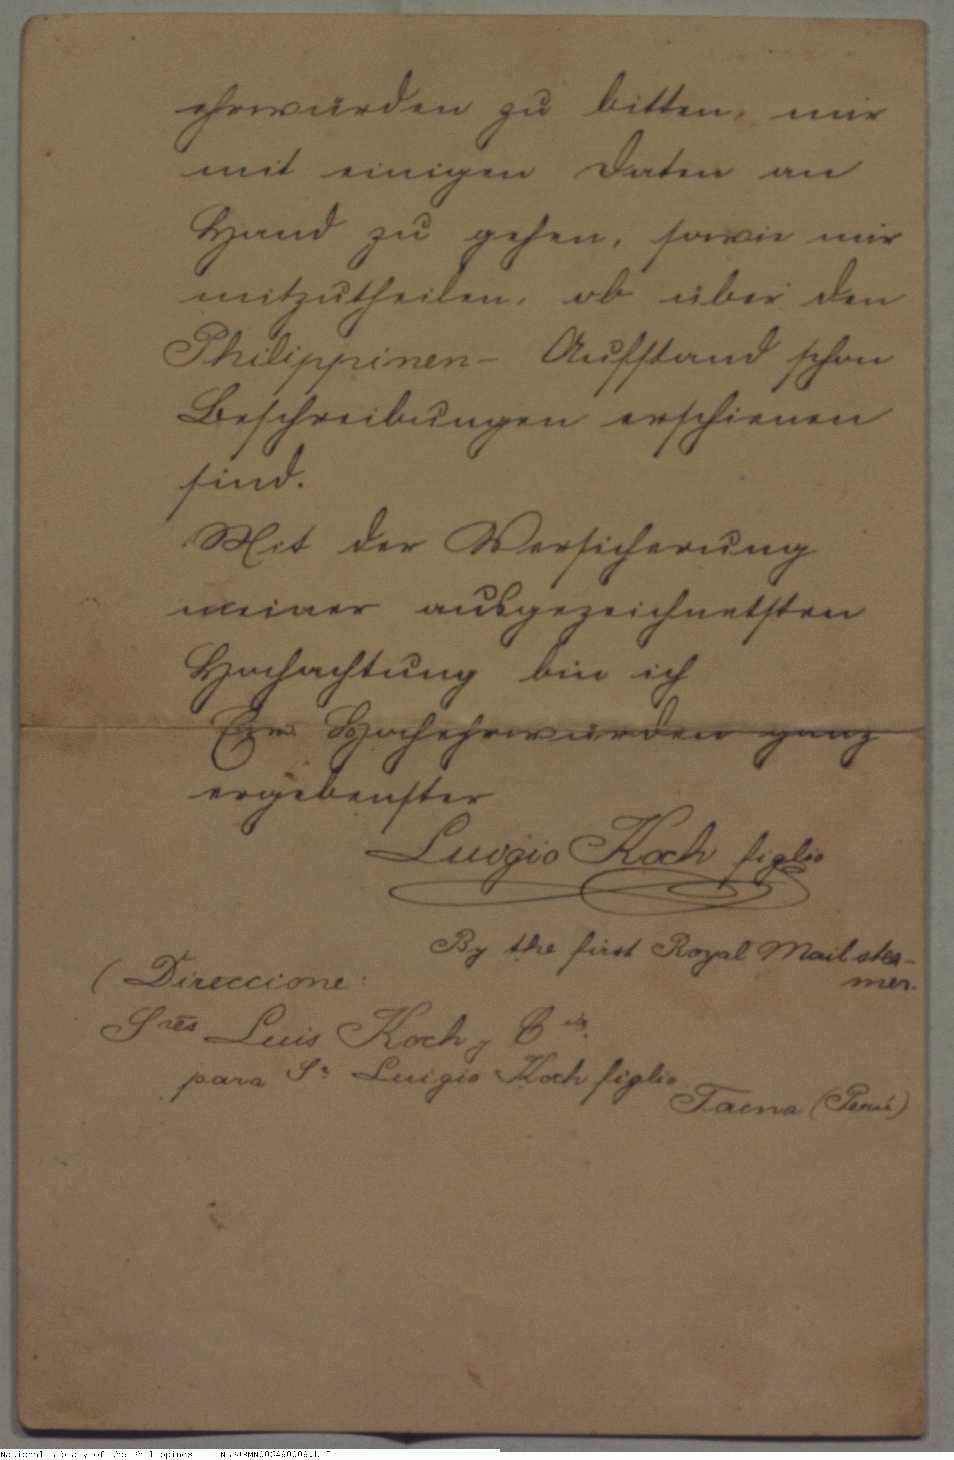 ehrwürden zu bitten, mir
mit einigen Daten an
Hand zu gehen, sowie mir
mitzutheilen, ob über den
Philippinen- Aufstand schon
Beschreibungen erschienen
sind.
Mit der Versicherung
meiner ausgezeichnetsten
Hochachtung bin ich
Euer Hochehrwürden ganz
ergebenster
Luigio Koch figlio
By the first Royal Mail stea-
mer.
(Direccione:
Sres Luis Koch y Cia.
para Sr. Luigio Koch figlio
Tacna (Perú)
National Library of the Philippines